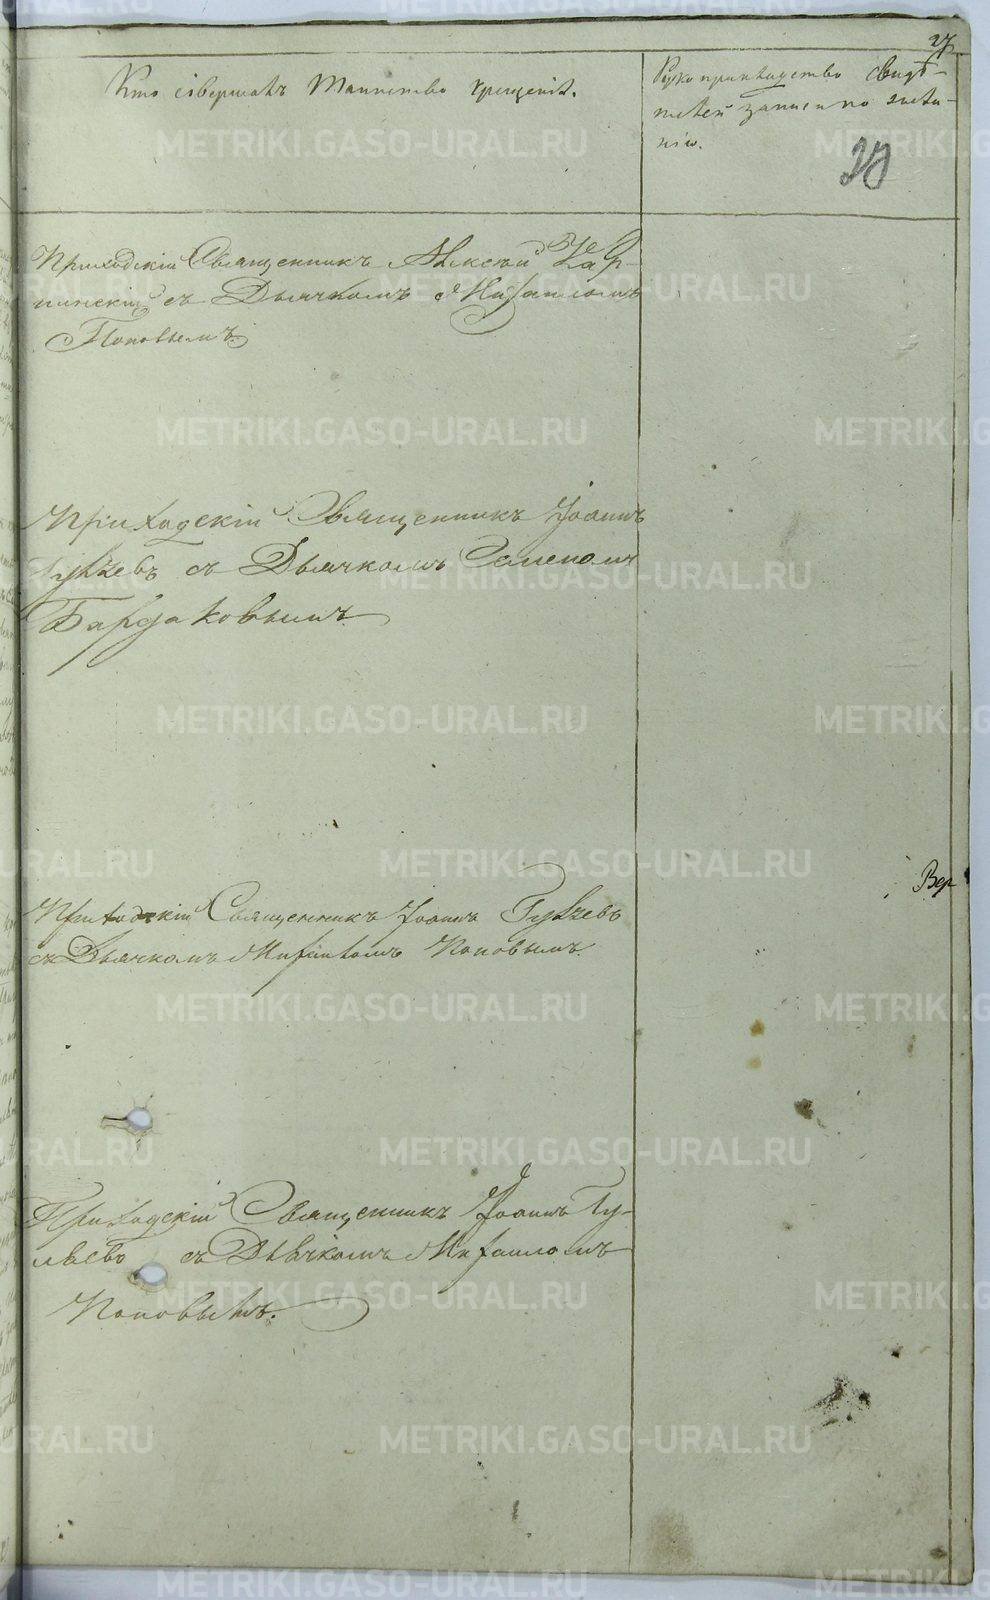 27
Кто совершалъ Таинство крещенія.
Рукоприкладство свидѣ-
телей записи по жела-
нію.
27
Приходскій Священникъ Алексѣй
съ Дьячкомъ Михаиломъ
Поповымъ.
Приходскій Священникъ Іоаннъ
съ Дьячкомъ Семеномъ
Бардаковымъ
Вер
Приходскій Священникъ Іоаннъ
съ Дьячкомъ Михаиломъ Поповымъ.
Приходскій Священникъ Іоаннъ Гу-
льевъ съ Дьячкомъ Михаиломъ
Поповымъ.
METRIKI.GASO-URAL.RU